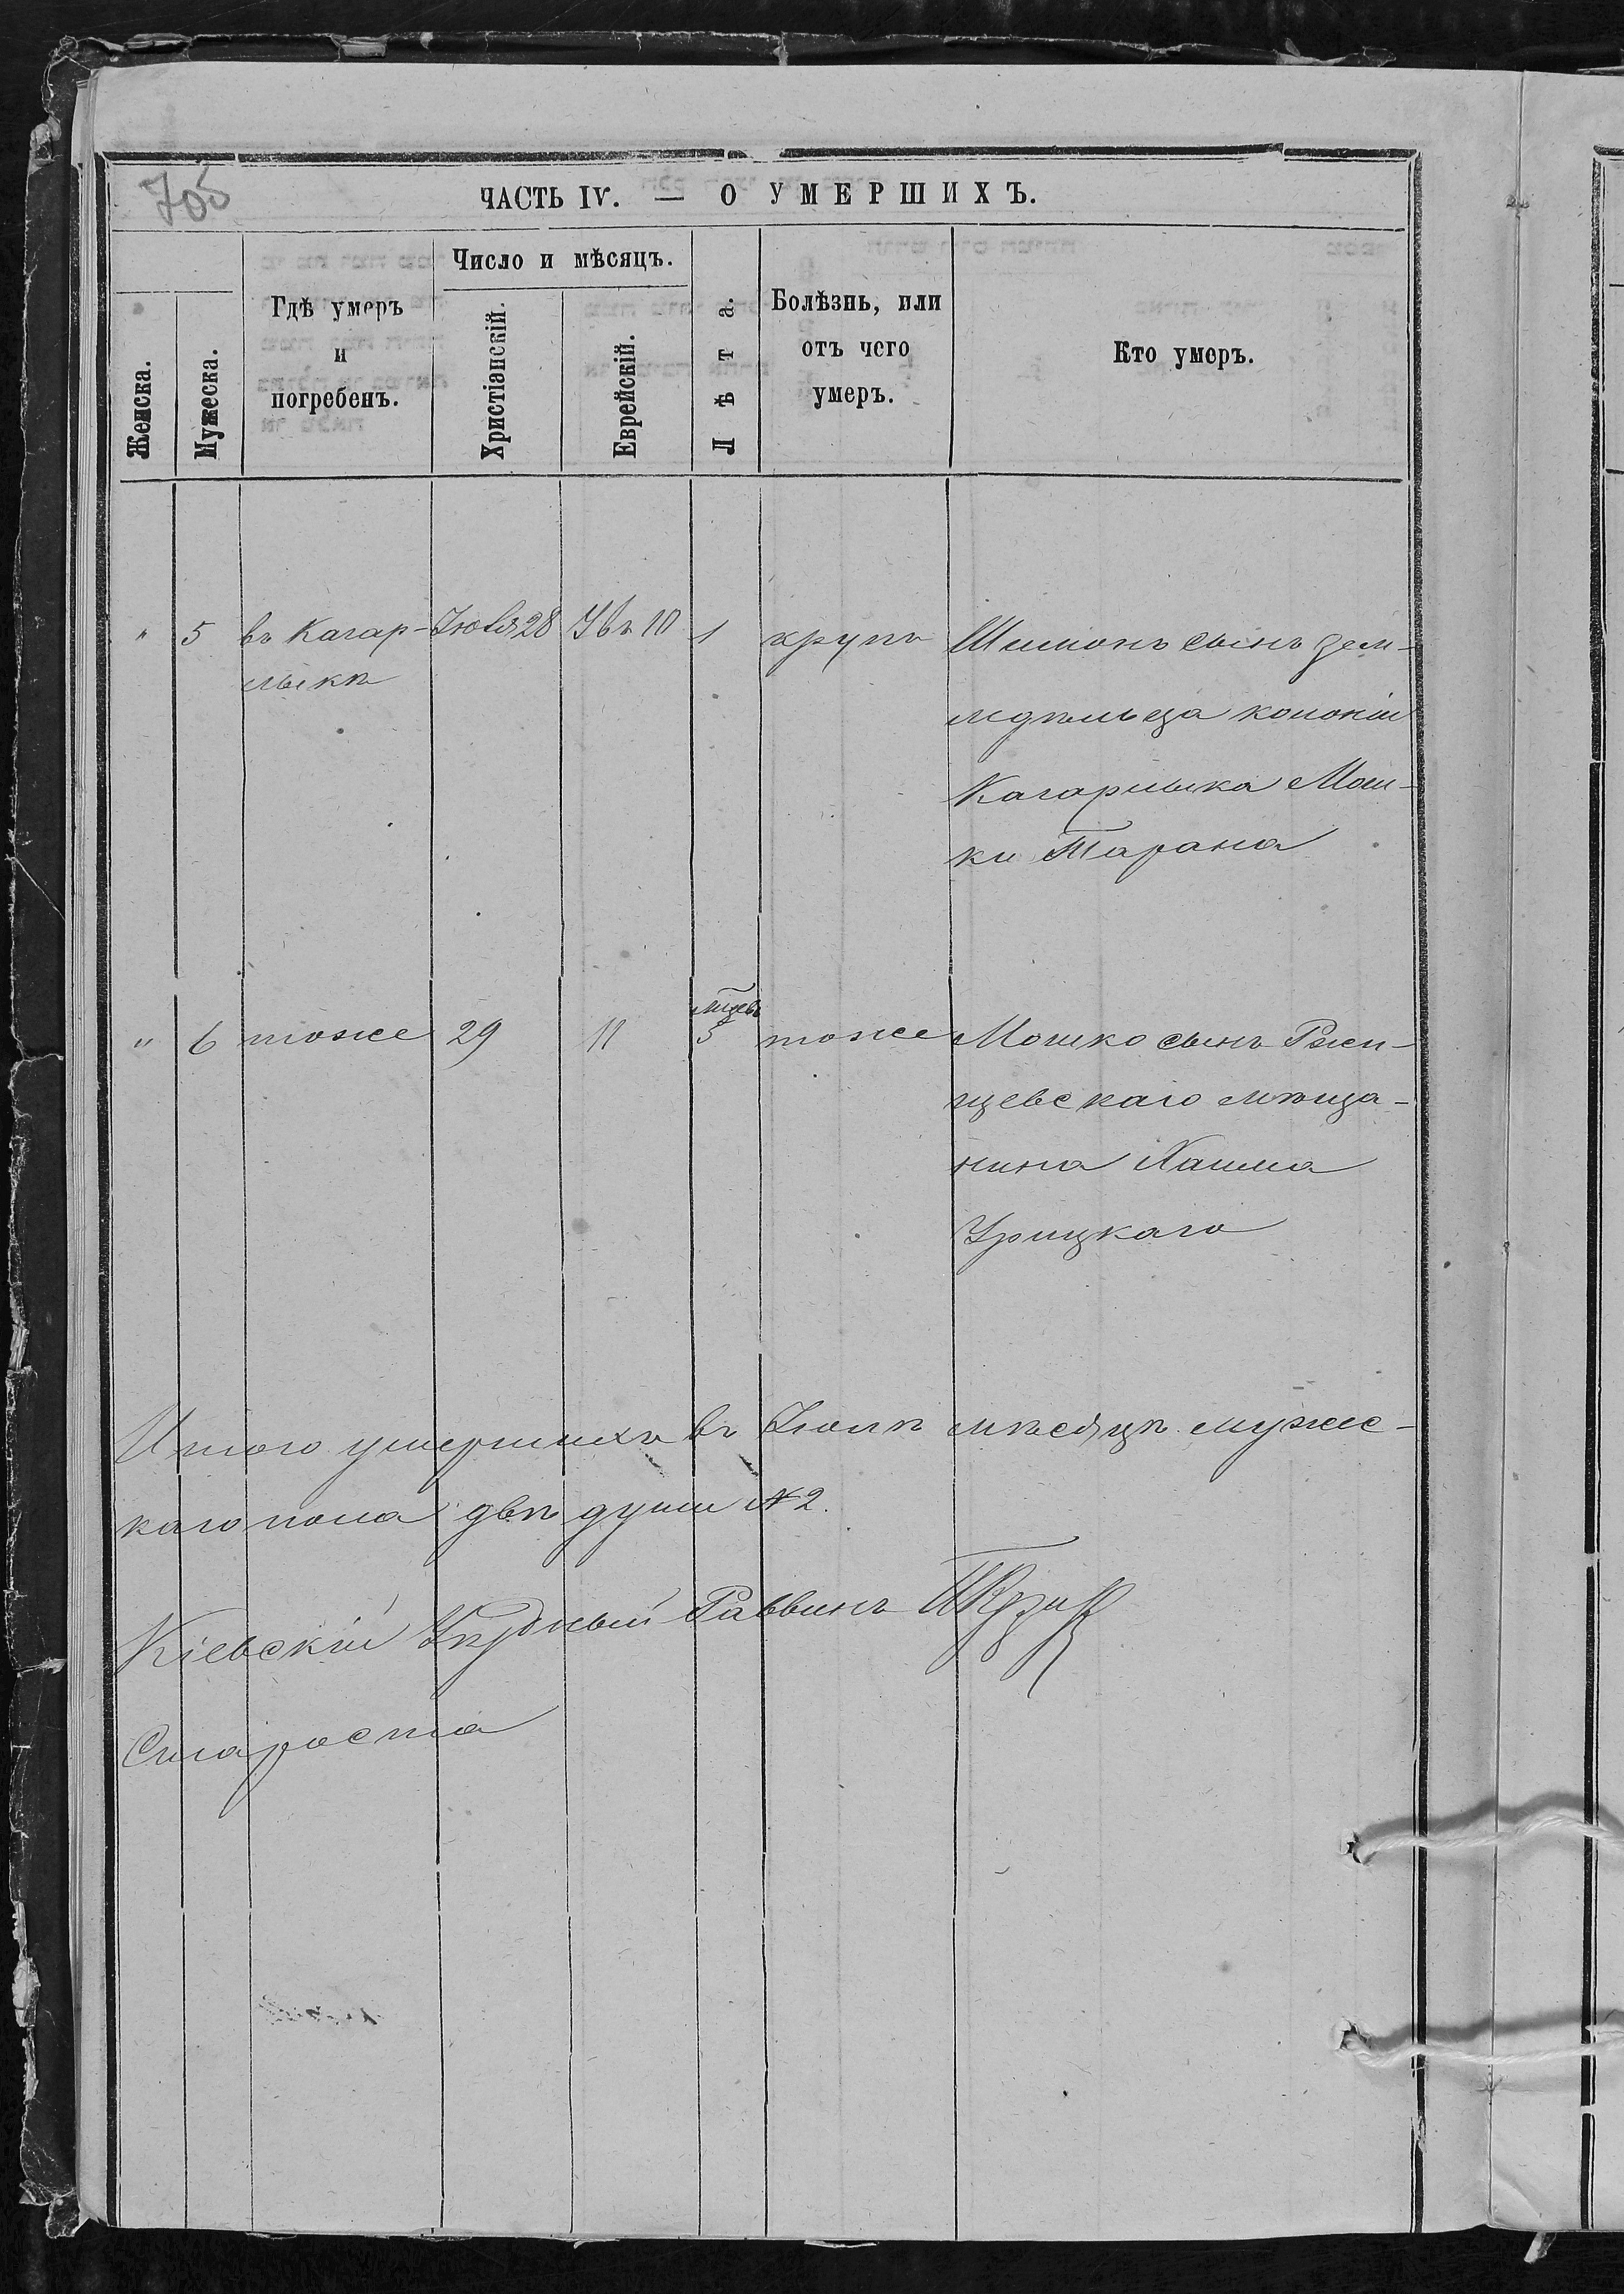 705
ЧАСТЬ IV. — О УМЕРШИХЪ.
Женска.
Мужеска.
Гдѣ умеръ
и
погребенъ.
Число и мѣсяцъ.
Христіанскій.
Еврейскій.
Лѣта.
Болѣзнь, или
отъ чего
умеръ.
Кто умеръ.
" 5 въ Кагар- Іюля 28 Увъ 10 1 крупъ Шимонъ сынъ зем-
лыкѣ
ледѣльца колоніи
Кагарлыка Мош-
ки Тарана
мцевъ
" 6 тоже 29 11 5 тоже Мошко сынъ Ржи-
щевскаго мѣща-
нина Хаима
Урицкаго
Итого умершихъ въ Іюлѣ мѣсяцѣ мужес-
каго пола двѣ души №2.
Кіевскій Уѣздный Раввинъ
Староста